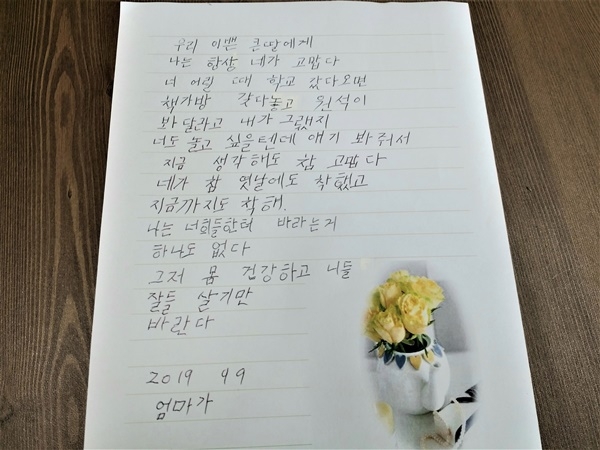 우리 이쁜 큰딸에게
나는 항상 네가 고맙다
너 어릴 때 학교 갔다오면
책가방 갖다놓고 원석이
봐 달라고 내가 그랬지
너도 놀고 싶을텐데 얘기 봐줘서
지금 생각해도 참 고맙다
네가 참 옛날에도 착했고
지금까지도 착해.
나는 너희들한테 바라는거
하나도 없다
그저 몸 건강하고 니들
잘들 살기만
바란다
2019 9 9
엄마가